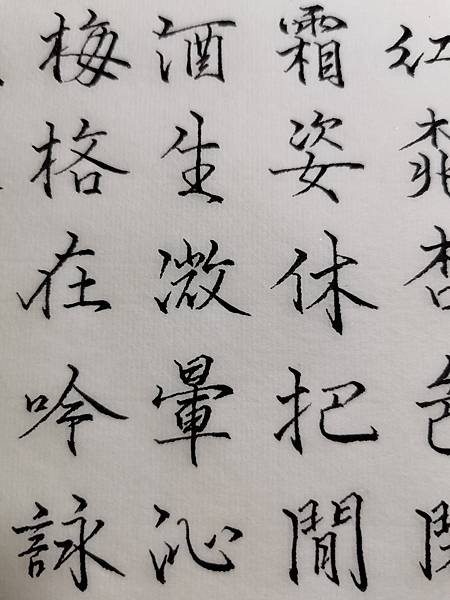 紅桃杏色
霜姿休把閒
酒生微暈沁
梅格在吟詠